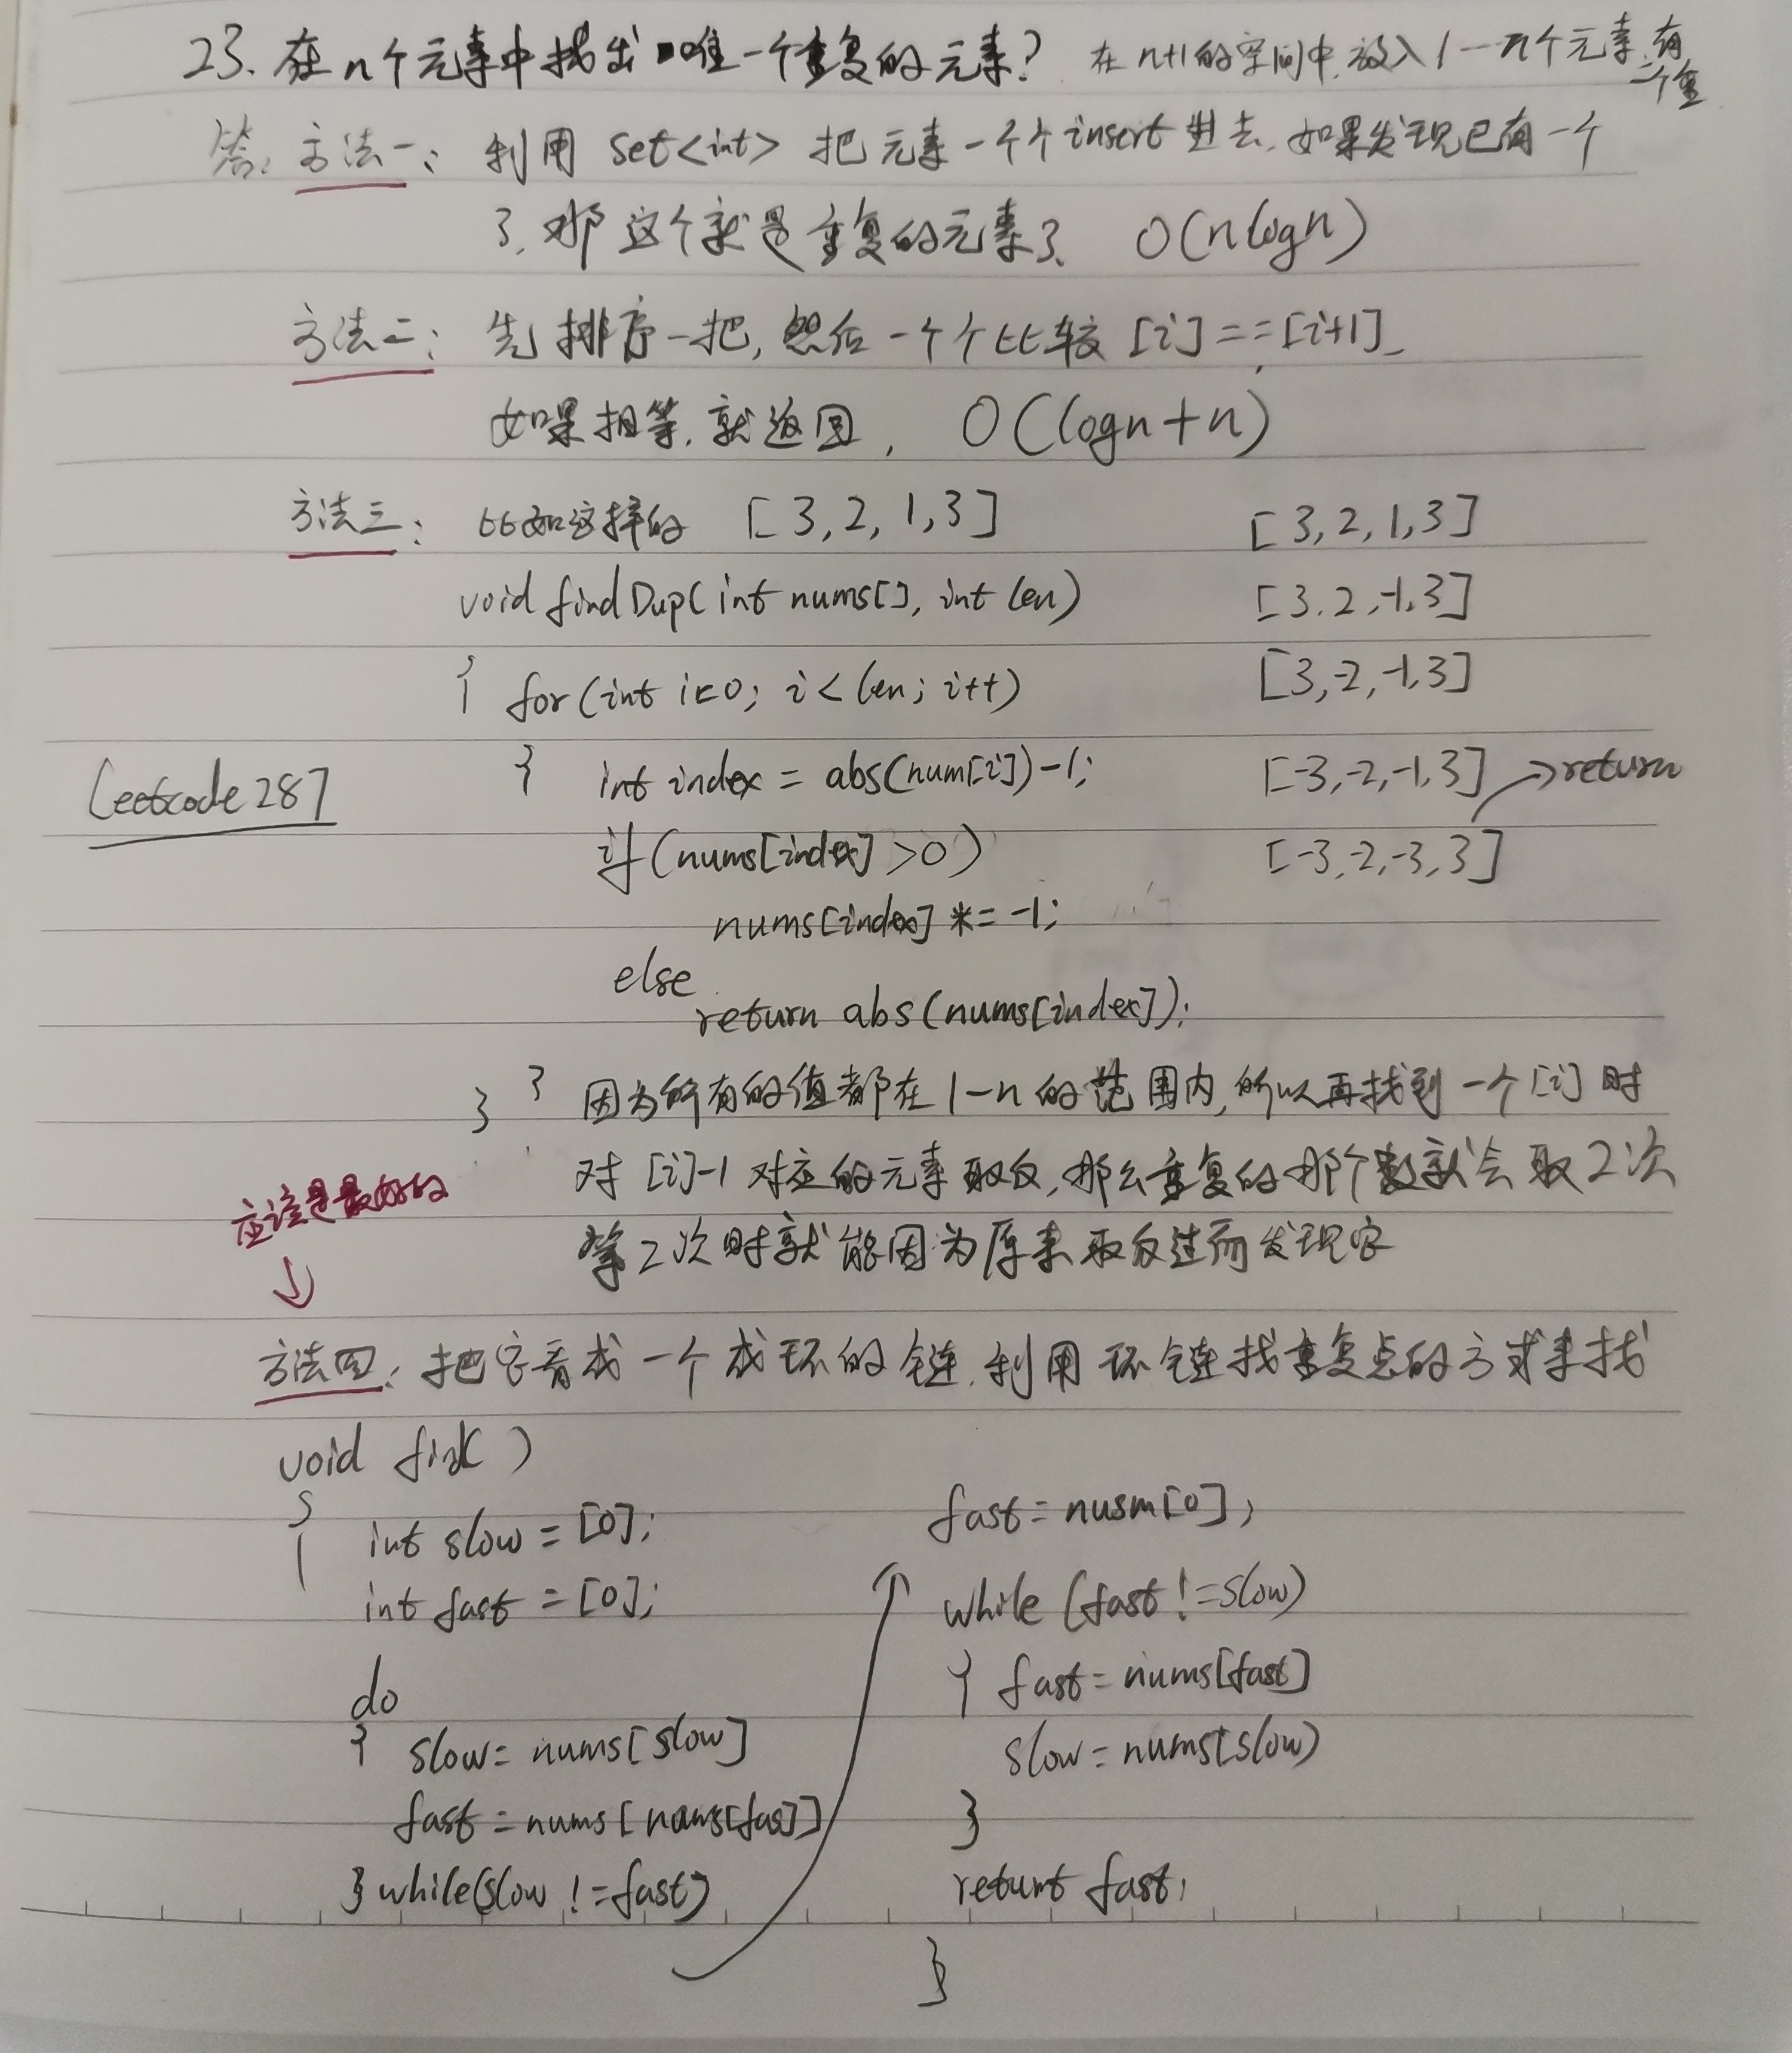 23. 在n个元素中找出唯一个重复的元素? 在n+1的空间中,放入1—n个元素,有
一个重
答: 方法一: 利用 set<int> 把元素一个个insert进去,如果发现已有一个
了,那这个就是重复的元素了、 O(nlogn)
方法二: 先排序一把,然后一个个比较 [i]==[i+1]
如果相等,就返回, O(logn+n)
方法三: 比如这样的 [3,2,1,3] [3,2,1,3]
void findDup(int nums[], int len) [3,2,-1,3]
{ for(int i=0; i<len; i++) [3,-2,-1,3]
Leetcode 287 { int index = abs(num[i])-1; [-3,-2,-1,3] → return
if(nums[index] >0) [-3,-2,-3,3]
nums[index] *= -1;
else
return abs(nums[index]);
} } 因为所有的值都在1-n的范围内,所以再找到一个[i]时
对[i]-1对应的元素取反,那么重复的那个数就会取2次
应该是最好的 ↓ 第2次时就能因为原来取反过而发现它
方法四: 把它看成一个成环的链,利用环链找重复点的方式来找
void find( )
{ int slow = [0];
int fast = [0];
do
{ slow = nums[slow]
fast = nums[nums[fas]]
} while(slow != fast)
fast = nusm[0];
while (fast != slow)
{ fast = nums[fast]
slow = nums[slow)
}
return fast;
}